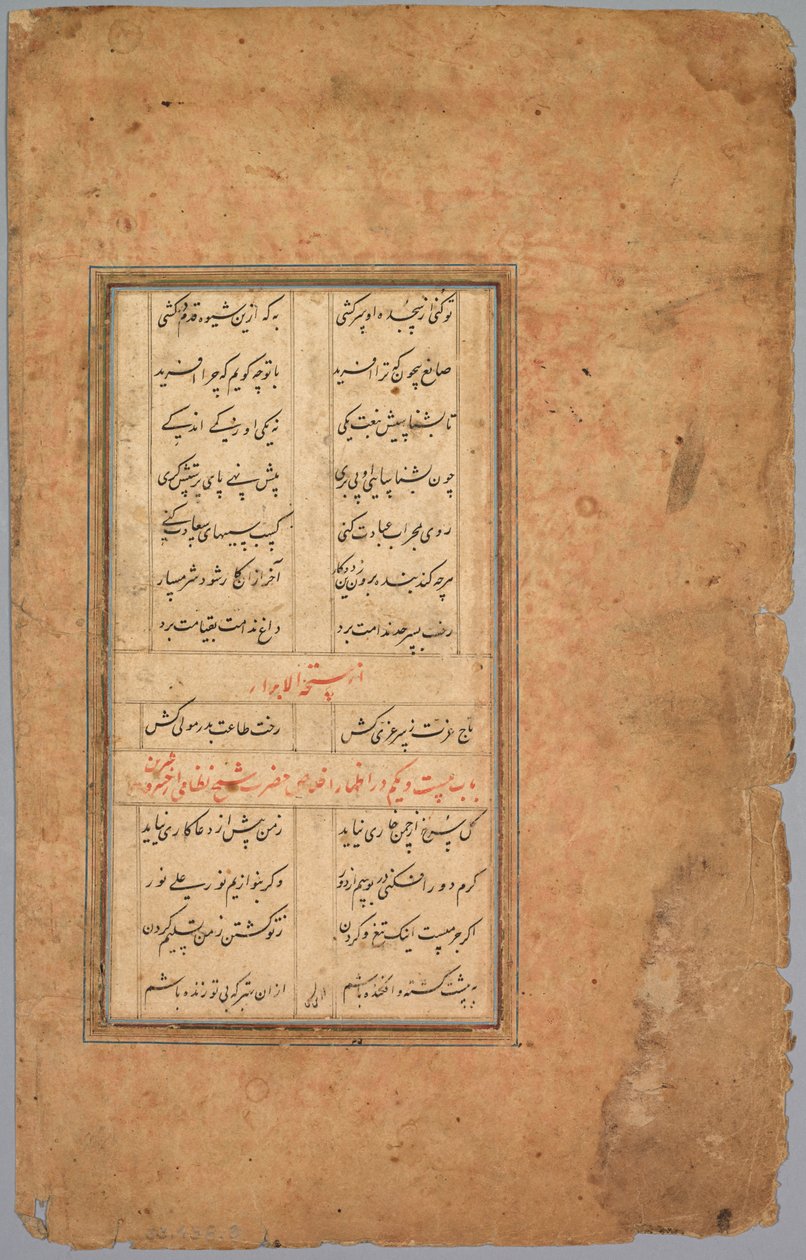 تو کنی از سجده او سرکشی به که ازین شیوه قدم درکشی
صانع بیچون که ترا آفرید با تو چه گویم که چرا آفرید
تا بشناسیش بنعت یکی نه یکی اندکی
چون بشناسایی او پی بری پیش نهی پای پرستش گری
روی بمحراب عبادت کنی کسب سببهای سعادت کنی
هرچه کند بنده برون زین دو کار آخر از آن کار شود شرمسار
رخت بسرحد ندامت برد داغ ندامت بقیامت برد
از سبحة الابرار
تاج عزت ز سر عزی کش رخت طاعت بدر مولی کش
باب بیست و یکم در اظهار اخلاص حضرت شیخ نظامی از خسرو شیرین
گل سرخ از چمن خاری نیاید ز من بیش از دعا کاری نیاید
گرم دور افکنی در بوسم از دور وگر بنوازیم نور علی نور
اگر جرمیست اینک تیغ و گردن ز تو کشتن ز من تسلیم کردن
به پیشت کشته و افکنده باشم از ان بهتر که بی تو زنده باشم